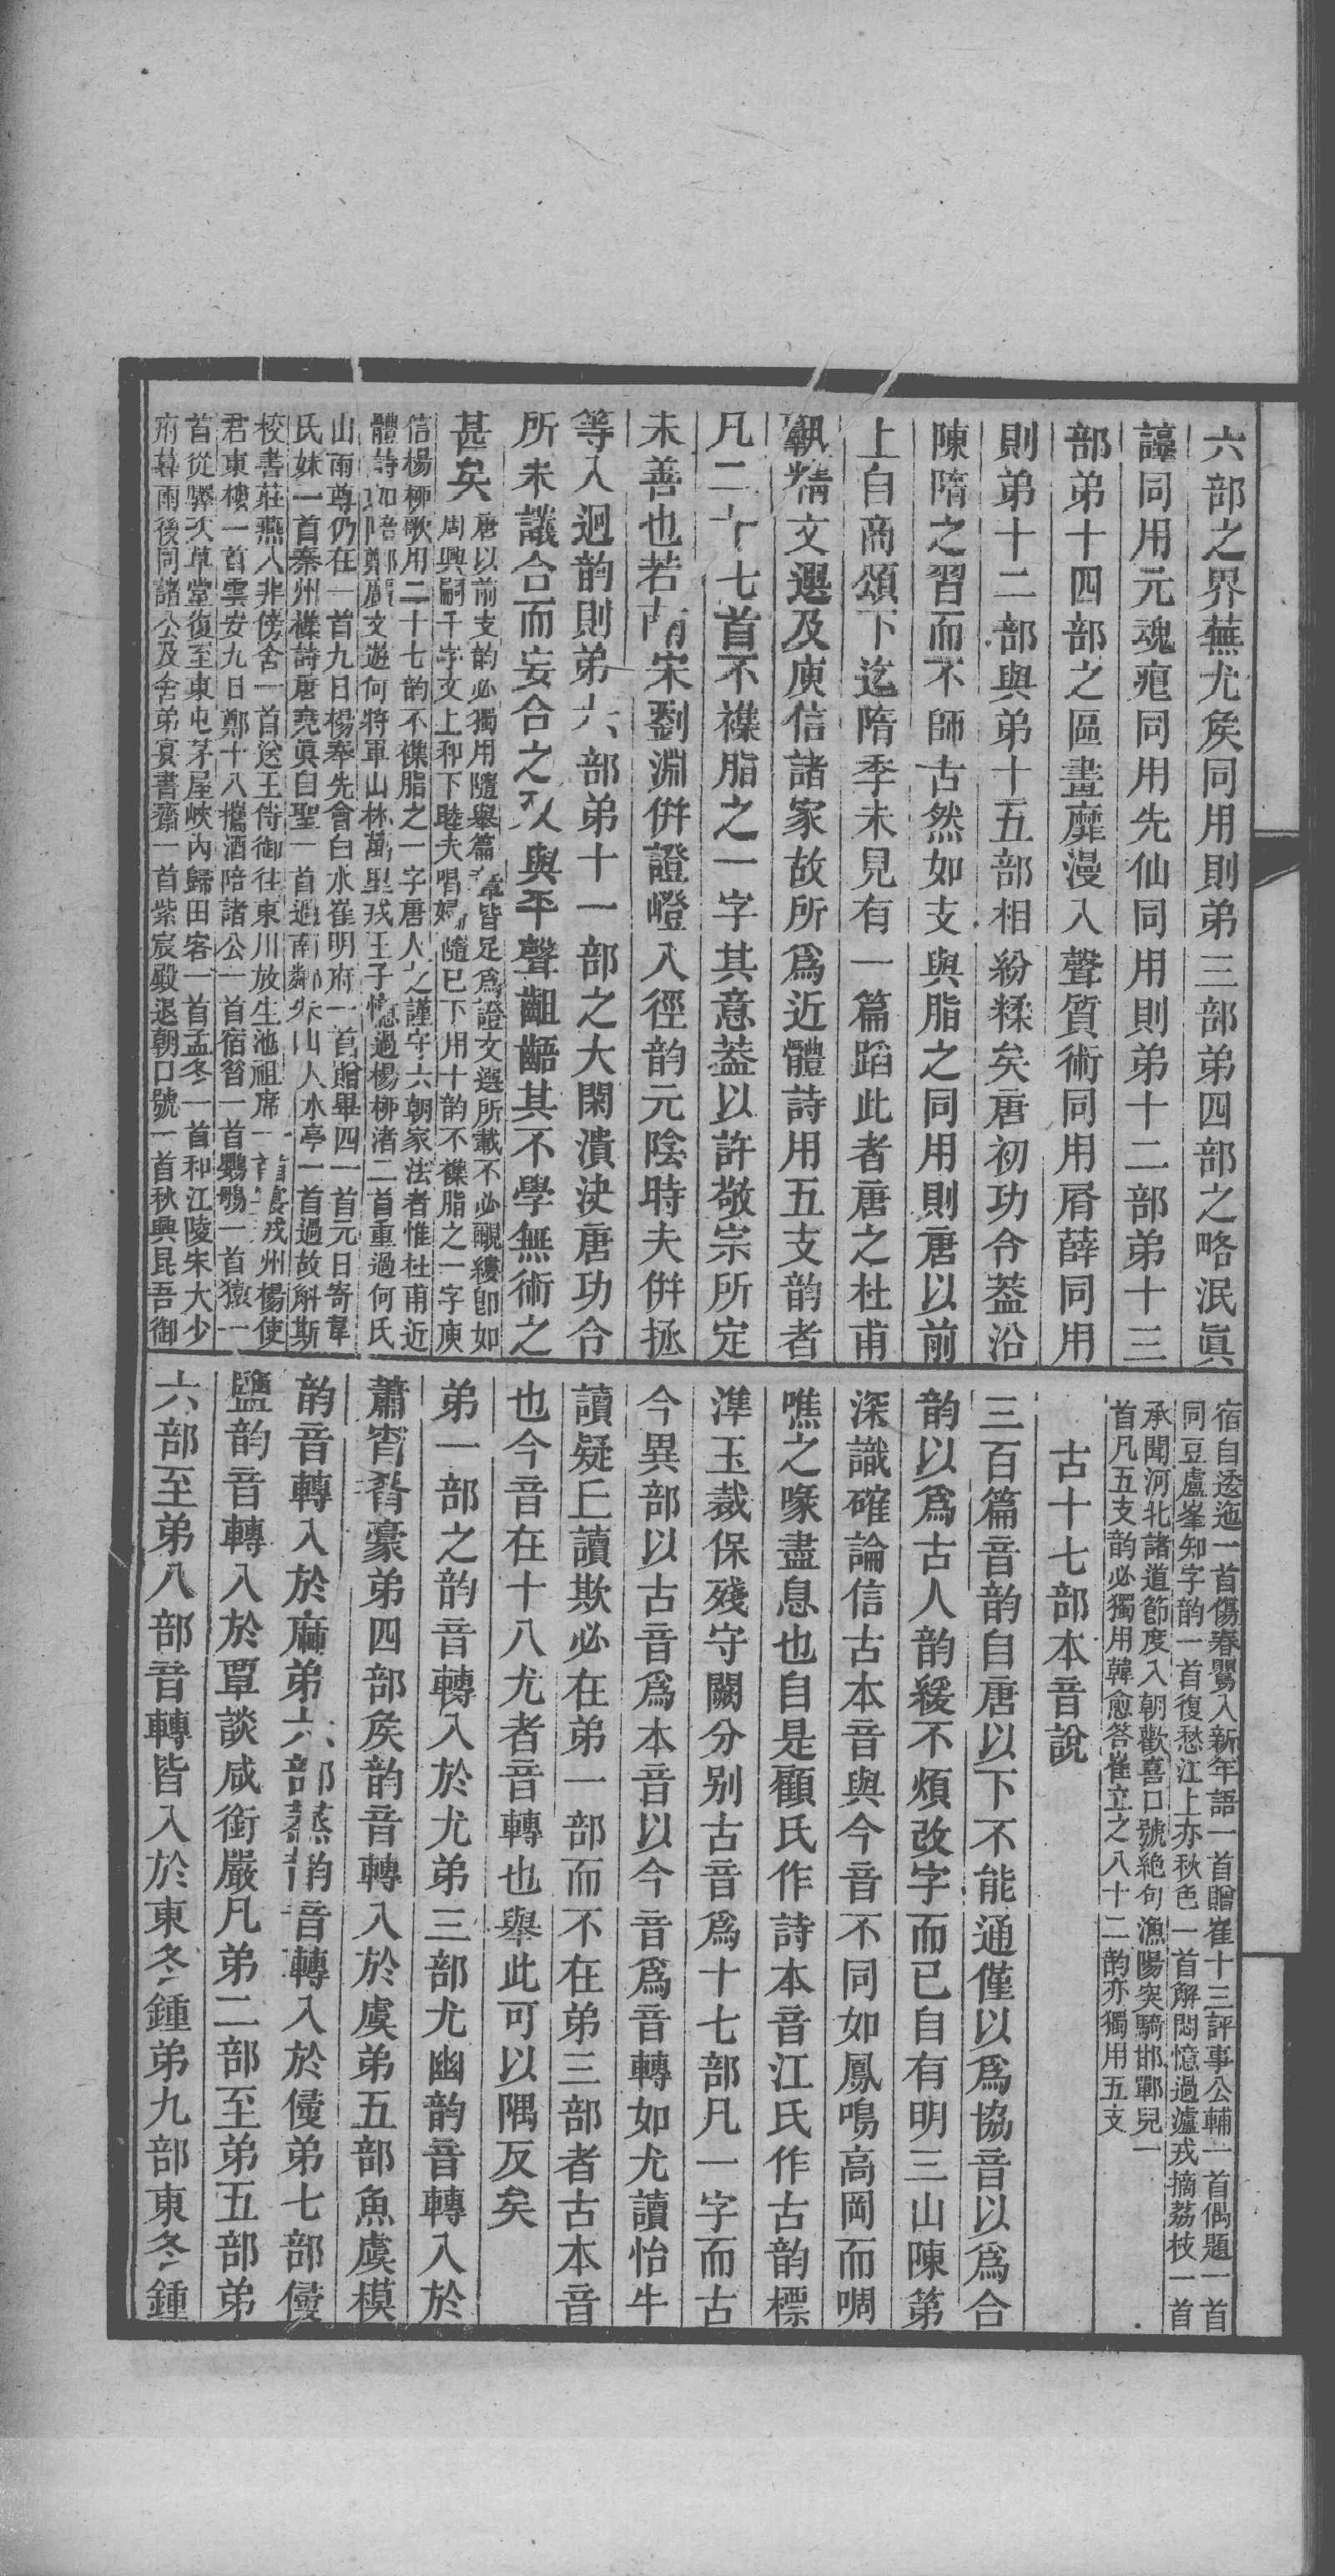 六部之界蕪尤矦同用則弟三部弟四部之略泯眞
諄同用元魂痕同用先仙同用則弟十二部弟十三
部弟十四部之區畫靡漫入聲質術同用屑薛同用
則弟十二部與弟十五部相紛糅矣唐初功令蓋沿
陳隋之習而不師古然如支與脂之同用則唐以前
上自商頌下迄隋季未見有一篇蹈此者唐之杜甫
孰精文選及庾信諸家故所爲近體詩用五支韵者
凡二十七首不襍脂之一字其意葢以許敬宗所定
未善也若南宋劉淵倂證嶝入徑韵元陰時夫倂拯
等入迥韵則弟六部弟十一部之大閑潰決唐功令
所未議合而妄合之又與平聲齟齬其不學無術之
甚矣
唐以前支韵必獨用隨舉篇章皆足爲證文選所載不必覼縷卽如
周興嗣千字文上和下睦夫唱婦隨已下用十韵不襍脂之一字庾
信楊柳歌用二十七韵不襍脂之一字唐人之謹守六朝家法者惟杜甫近
體詩如陪鄭廣文遊何將軍山林萬里戎王子憶過楊柳渚二首重過何氏
山雨尊仍在一首九日楊奉先會白水崔明府一首贈畢四一首元日寄韋
氏妹一首秦州襍詩唐堯眞自聖一首過南鄰朱山人水亭一首過故斛斯
校書莊燕入非傍舍一首送王侍御往東川放生池祖席一首宴戎州楊使
君東樓一首雲安九日鄭十八攜酒陪諸公一首宿昝一首鸚鵡一首猿一
首從驛次草堂復至東屯茅屋峽內歸田客一首孟冬一首和江陵宋大少
府暮雨後同諸公及舍弟宴書齋一首紫宸殿退朝口號一首秋興昆吾御
宿自逶迤一首傷春鶯入新年語一首贈崔十三評事公輔一首偶題一首
同豆盧峯知字韵一首復愁江上亦秋色一首解悶憶過瀘戎摘荔枝一首
承聞河北諸道節度入朝歡喜口號絶句漁陽突騎邯鄲兒一
首凡五支韵必獨用韓愈答崔立之八十二韵亦獨用五支
古十七部本音說
三百篇音韵自唐以下不能通僅以爲協音以爲合
韵以爲古人韵緩不煩改字而已自有明三山陳第
深識確論信古本音與今音不同如鳳鳴高岡而啁
噍之喙盡息也自是顧氏作詩本音江氏作古韵標
準玉裁保殘守闕分别古音爲十七部凡一字而古
今異部以古音爲本音以今音爲音轉如尤讀怡牛
讀疑丘讀欺必在弟一部而不在弟三部者古本音
也今音在十八尤者音轉也舉此可以隅反矣
弟一部之韵音轉入於尤弟三部尤幽韵音轉入於
蕭宵肴豪弟四部矦韵音轉入於虞弟五部魚虞模
韵音轉入於麻弟六部蒸韵音轉入於侵弟七部侵
鹽韵音轉入於覃談咸銜嚴凡弟二部至弟五部弟
六部至弟八部音轉皆入於東冬鍾弟九部東冬鍾